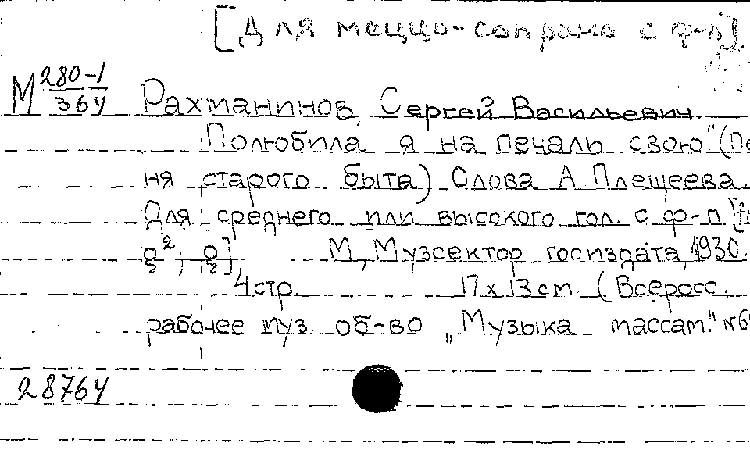 [Для меццо-сопрано с ф-п]
М 280-1/364 Рахманинов, Сергей Васильевич.
Полюбила я на печаль свою" (Пе
ня старого быта) Слова А. Плещеева.
Для среднего или высокого гол. с ф-п [
g², g] М., Музсектор госиздата, 1930.
4 стр. 17 х 13 cm. (Всеросс.
рабочее муз. об-во „Музыка массам." №
28764